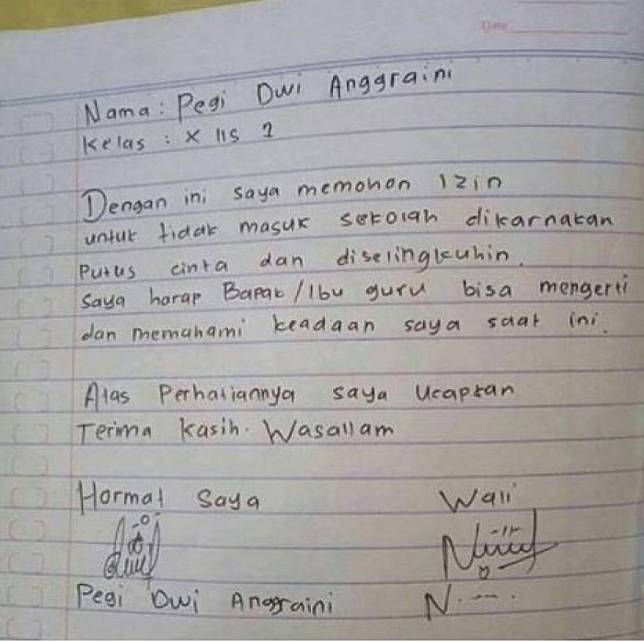 Date
Nama : Pegi Dwi Anggraini
Kelas : X IIS 2
Dengan ini saya memohon izin
untuk tidak masuk sekolah dikarnakan
Putus cinta dan diselingkuhin.
Saya harap Bapak/Ibu guru bisa mengerti
dan memahami keadaan saya saat ini.
Atas Perhatiannya saya Ucapkan
Terima kasih. Wasallam
Hormat Saya Wali
Pegi Dwi Anggraini N.---.